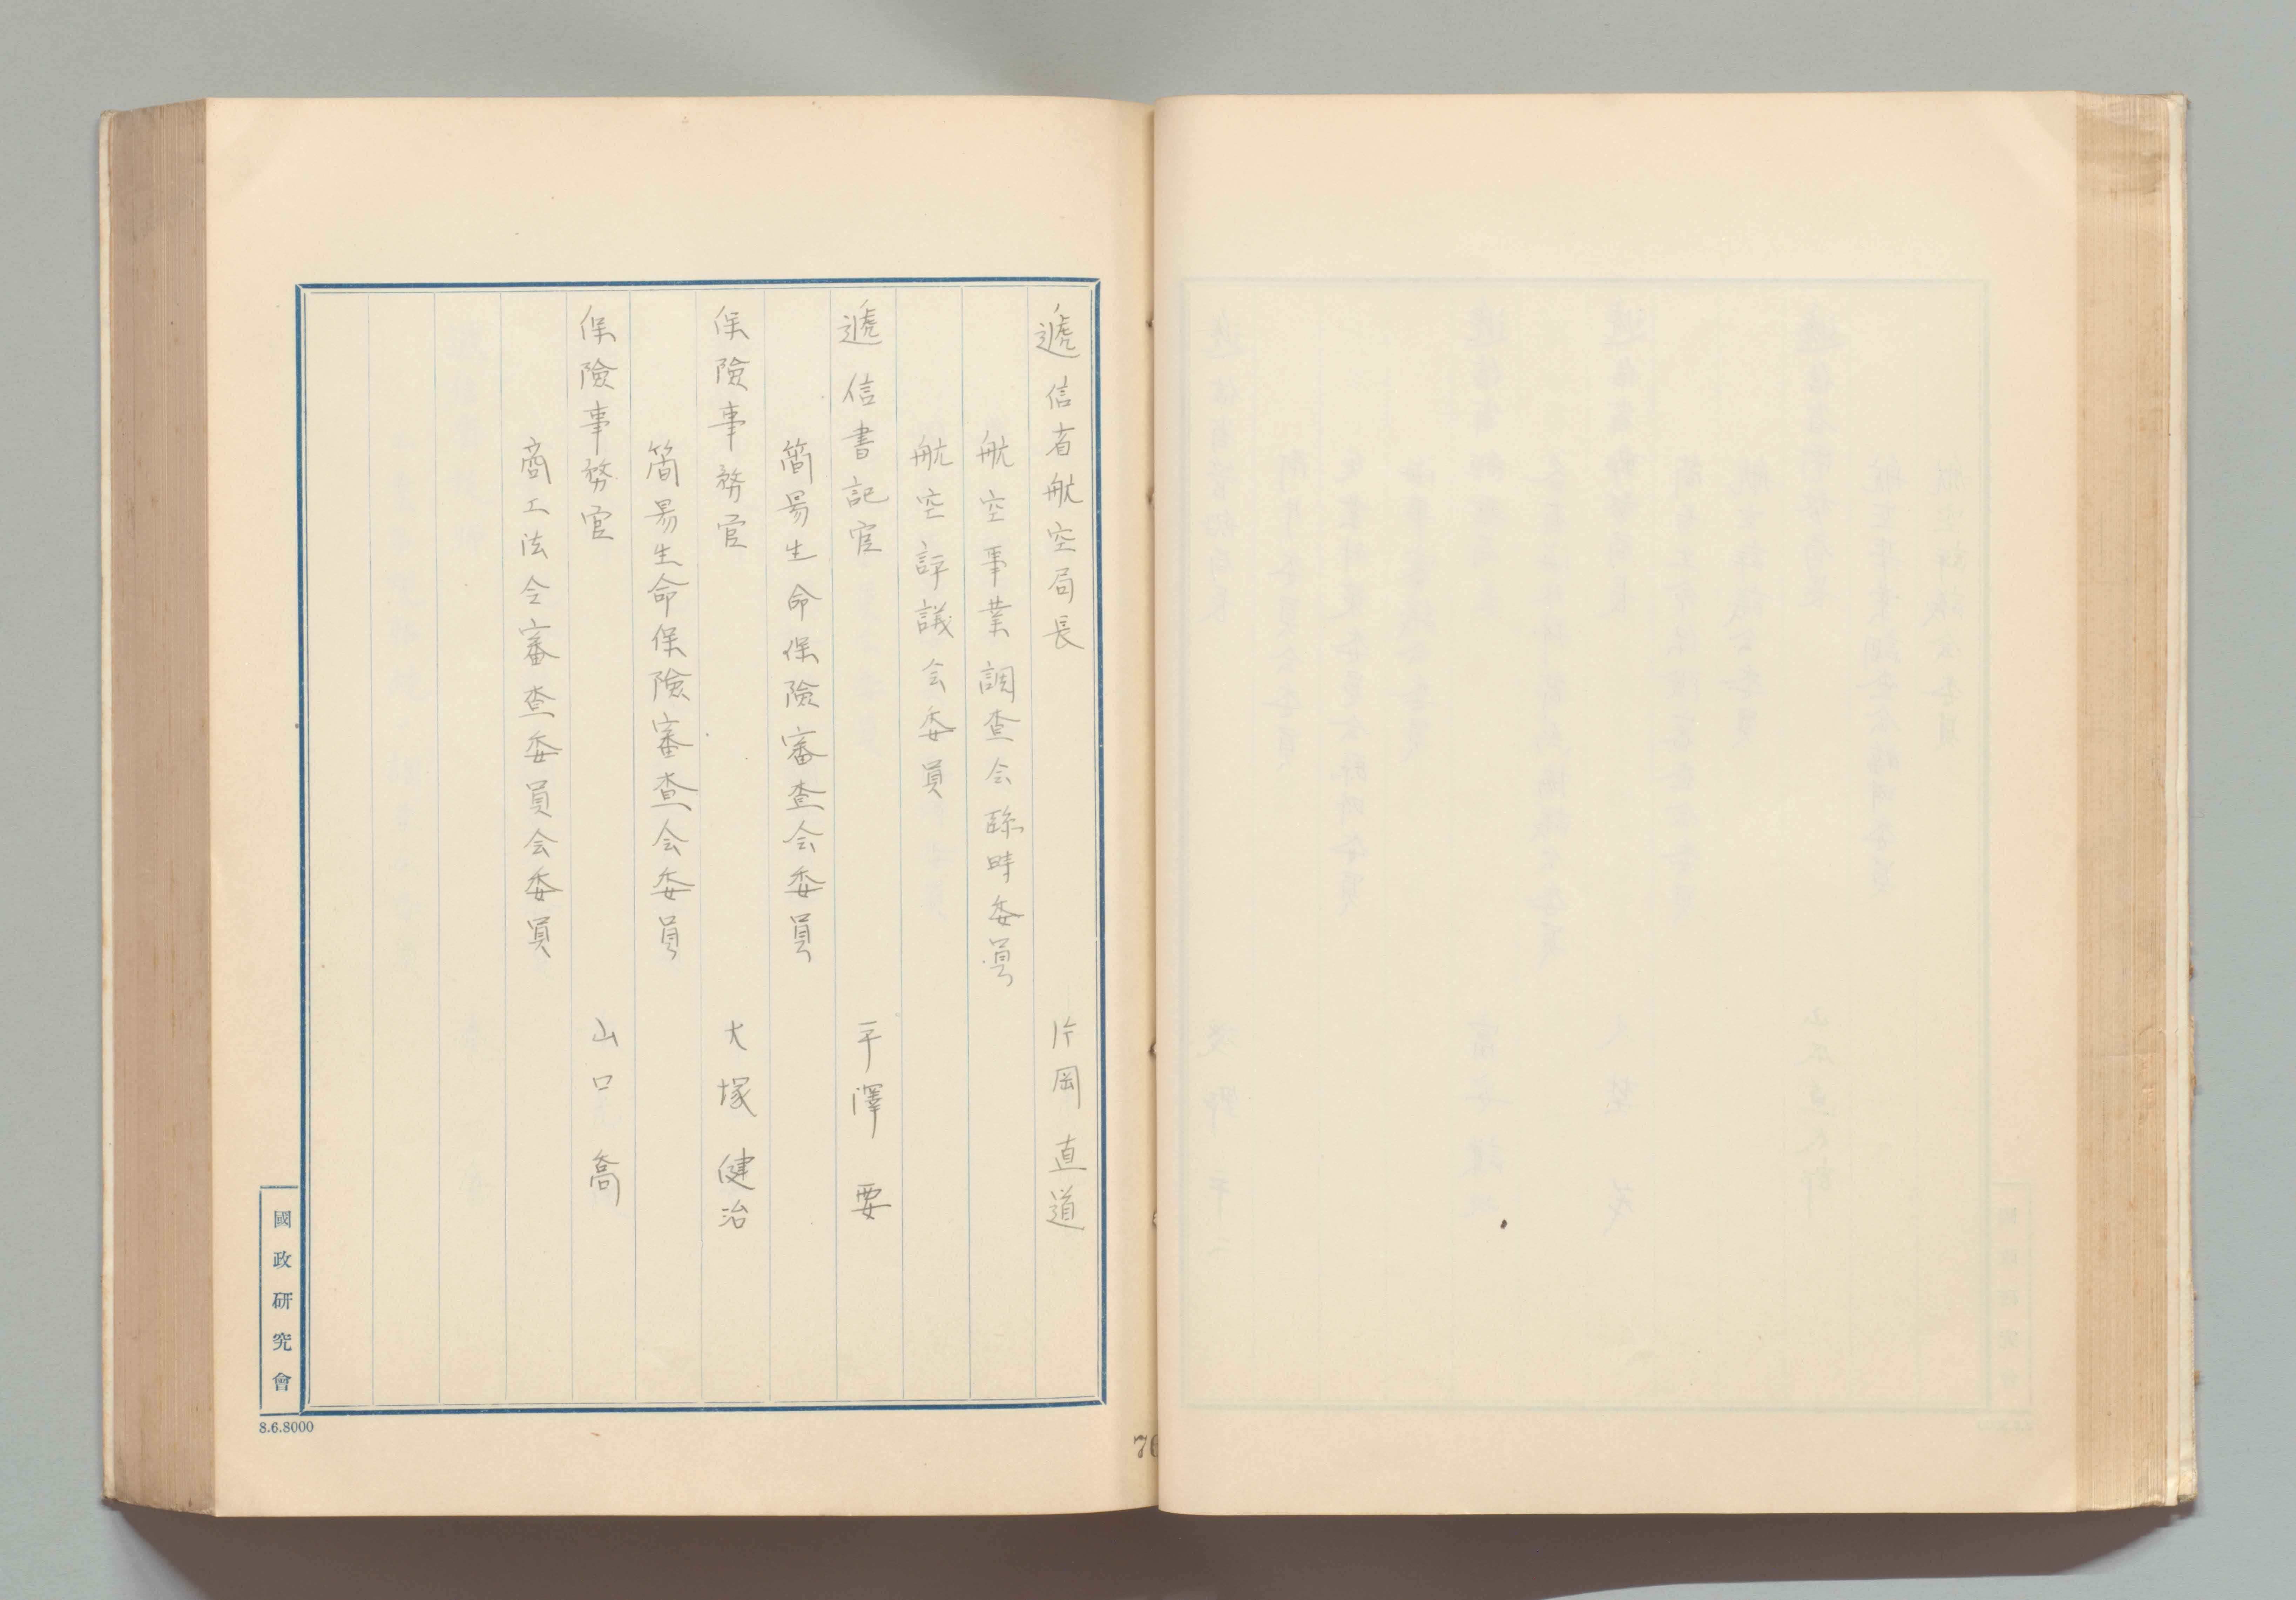 遞信省航空局長　片岡直道
航空事業調査会臨時委員
航空評議会委員
遞信書記官　平澤要
簡易生命保険審査会委員
保険事務官　大塚健治
簡易生命保険審査会委員
保険事務官　山口喬
商工法令審査委員会委員
國政研究會
8.6.8000